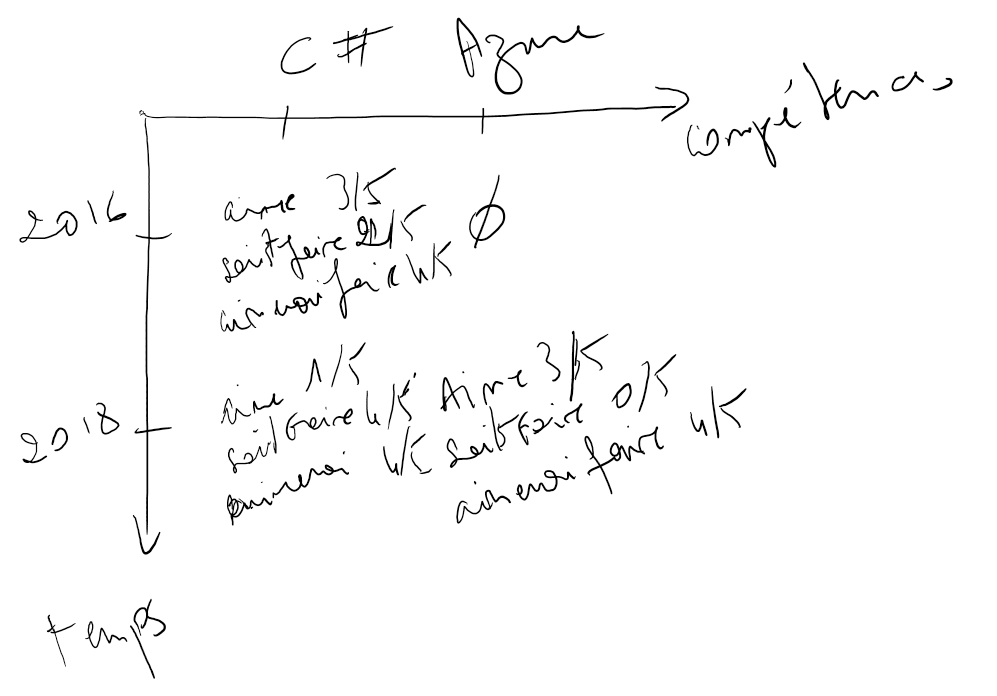 C# Azure
compétences
2016
aime 3/5
sait faire 2/5
∅
aimerai faire 4/5
2018
aime 1/5
sait faire 4/5
aimerai 4/5
Aime 3/5
sait faire 0/5
aimerai faire 4/5
temps